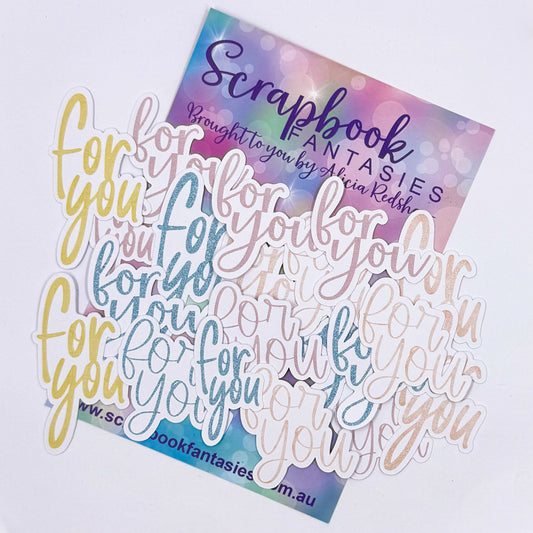 Scrapbook
FANTASIES
Brought to you by Alicia Redsh
for
you
for
you
for
you
for
you
for
you
for
you
you
for
you
for
you
for
you
for
you
for
you
for
you
for
you
for
you
you
you
www.sc
pbookfantasies
om.au